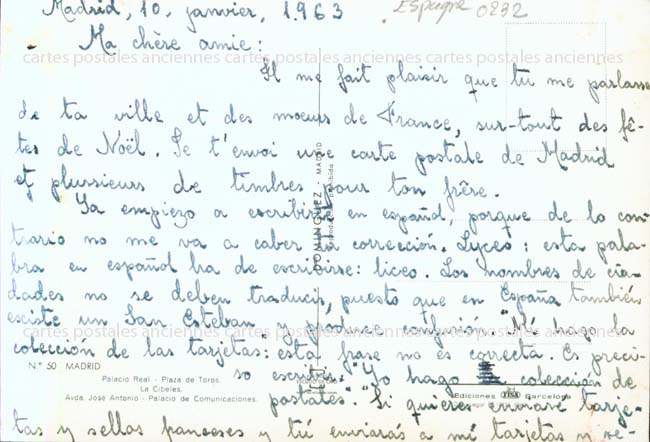 Madrid, 10, janvier, 1.963
Espagne 0232
Ma chère amie:
cartes postales anciennes cartes postales anciennes cartes postales anciennes
Il me fait plaisir que tu me parlasse
de ta ville et des moeurs de France, sur-tout des fê-
tes de Noël. Je t'envoi une carte postale de Madrid
et plursieurs de timbres pour ton frêre.
Ya empiezo a escribirte en español, porque de lo con-
trario no me va a caber la corrección. Lyceo: esta pala-
bra en español ha de escribirse: liceo. Los nombres de ciu-
dades no se deben traducir, puesto que en España también
esciste un San Esteban y
cartes postales anciennes cartes postales anciennes cartes postales anciennes
colección de las tarjetas: esta frase no es correcta. Es preci-
so escribir: "Yo hago colección de
postales". Si quieres enviaré tarje-
tas y sellos franceses y tú enviarás a mi tarjetas y se-
N.º 50 MADRID
Palacio Real - Plaza de Toros.
La Cibeles.
Avda. José Antonio - Palacio de Comunicaciones.
DOMINGUEZ - MADRID
Ediciones Barcelona